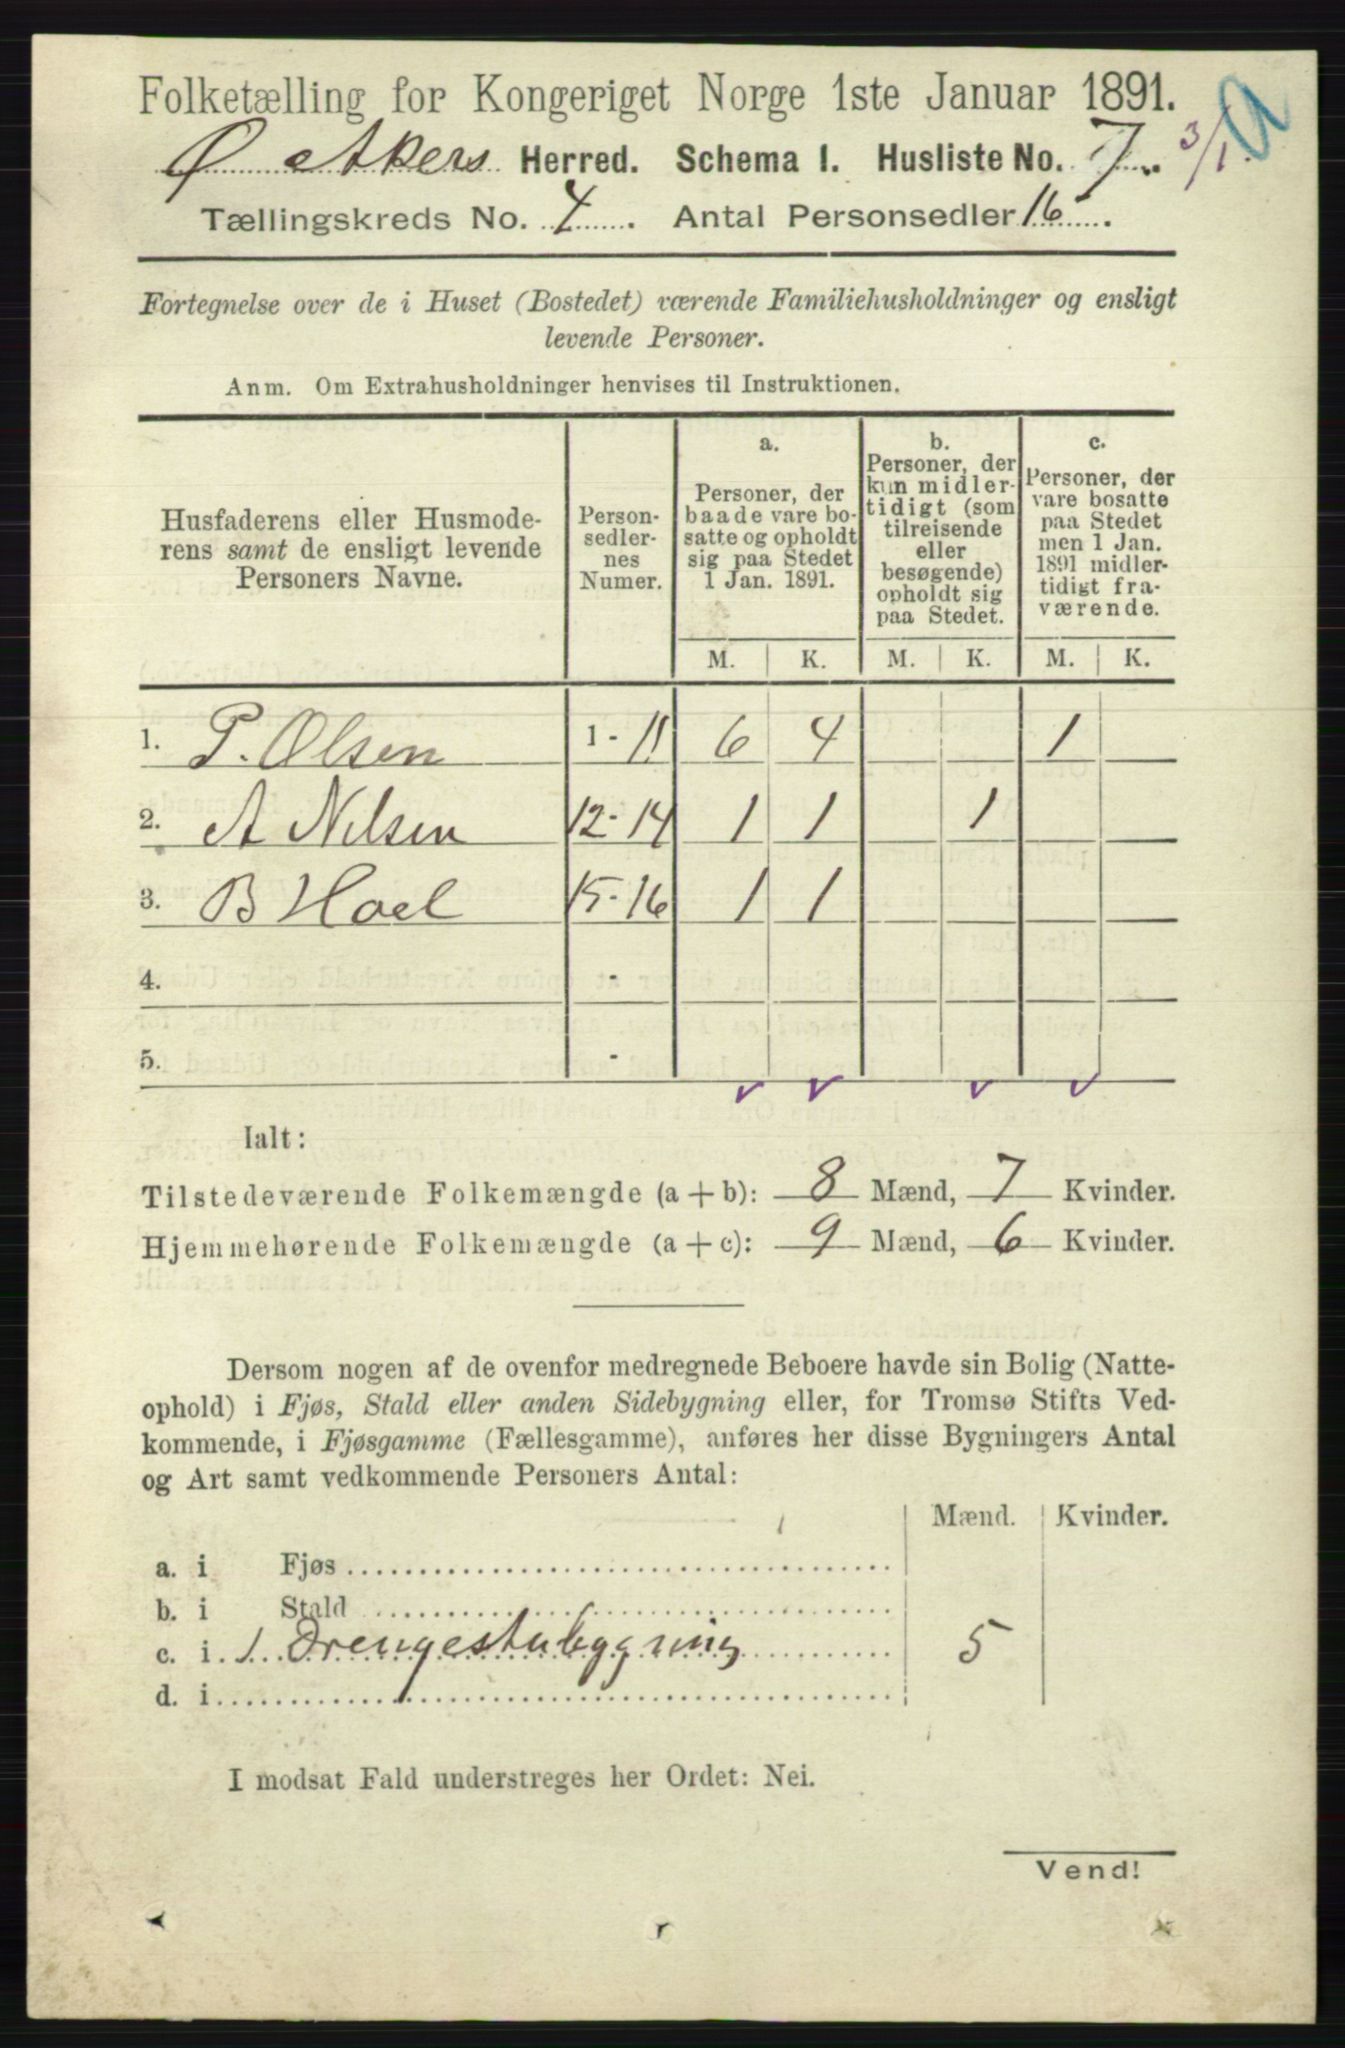 Folketælling for Kongeriget Norge 1ste Januar 1891.
Ø Akers Herred. Schema I. Husliste No. 7. 3/1
Tællingskreds No. 4. Antal Personsedler 16.
Fortegnelse over de i Huset (Bostedet) værende Familiehusholdninger og ensligt
levende Personer.
Anm. Om Extrahusholdninger henvises til Instruktionen.
Husfaderens eller Husmode-
rens samt de ensligt levende
Personers Navne.
Person-
sedler-
nes
Numer.
a.
Personer, der
baade vare bo-
satte og opholdt
sig paa Stedet
1 Jan. 1891.
b.
Personer, der
kun midler-
tidigt (som
tilreisende
eller
besøgende)
opholdt sig
paa Stedet.
c.
Personer, der
vare bosatte
paa Stedet
men 1 Jan.
1891 midler-
tidigt fra-
værende.
M. K. M. K. M. K.
1. P. Olsen 1 - 11 6 4 1
2. A Nilsen 12 - 14 1 1 1
3. B Hoel 15 - 16 1 1
4. -
5. -
Ialt:
Tilstedeværende Folkemængde (a + b): 8 Mænd, 7 Kvinder.
Hjemmehørende Folkemængde (a + c): 9 Mænd, 6 Kvinder.
Dersom nogen af de ovenfor medregnede Beboere havde sin Bolig (Natte-
ophold) i Fjøs, Stald eller anden Sidebygning eller, for Tromsø Stifts Ved-
kommende, i Fjøsgamme (Fællesgamme), anføres her disse Bygningers Antal
og Art samt vedkommende Personers Antal:
Mænd. Kvinder.
a. i Fjøs
b. i Stald
c. i 1 Drengestubygning 5
d. i
I modsat Fald understreges her Ordet: Nei.
Vend!